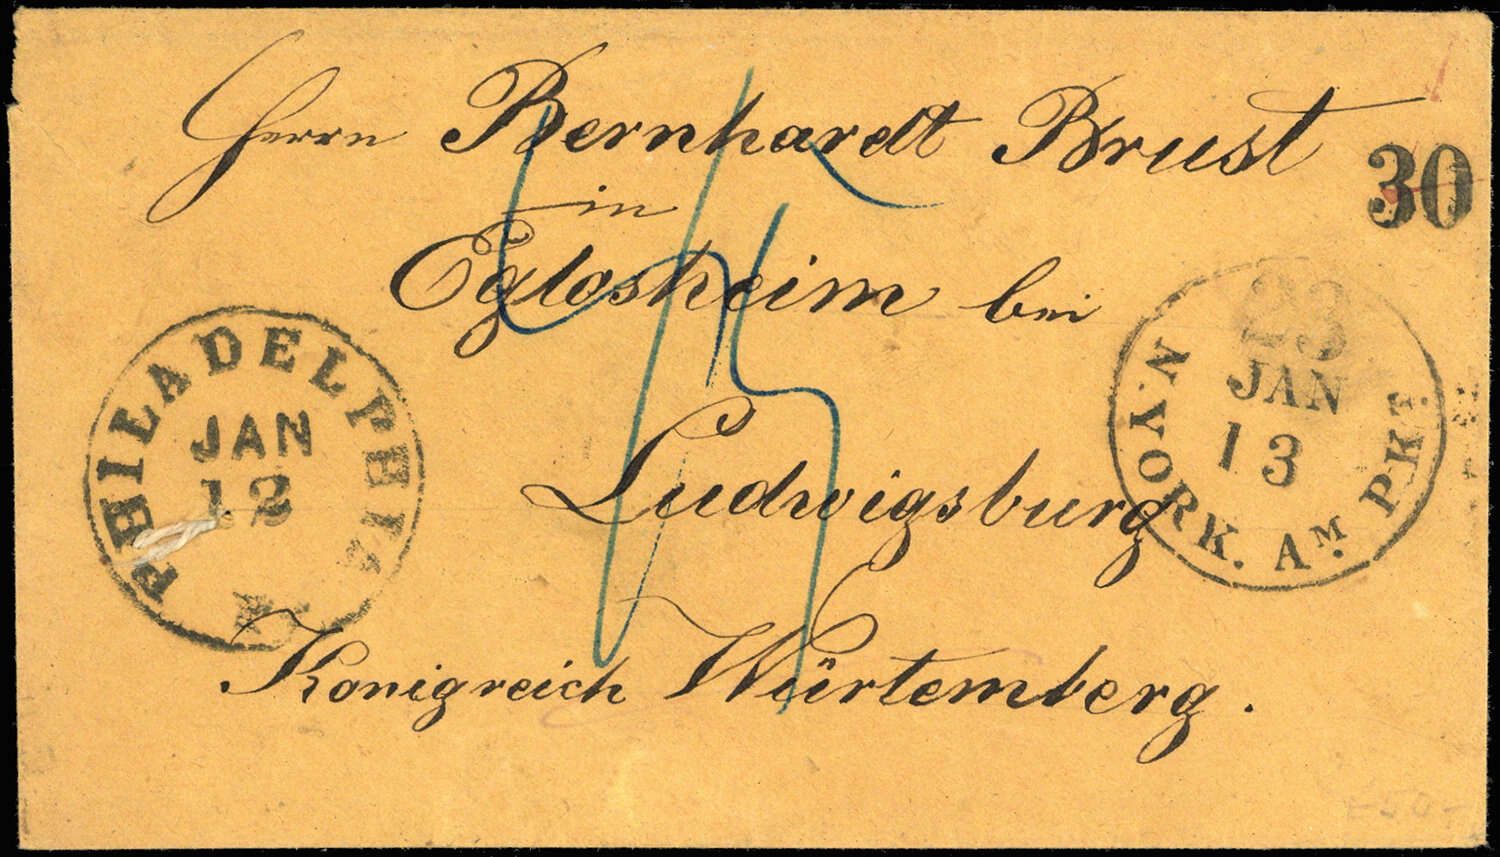 Herrn Bernhardt Brust
in
Eglosheim bei
Ludwigsburg
Königreich Würtemberg.
30
PHILADELPHIA
JAN
12
23
N. YORK. AM. PKT.
JAN
13
45